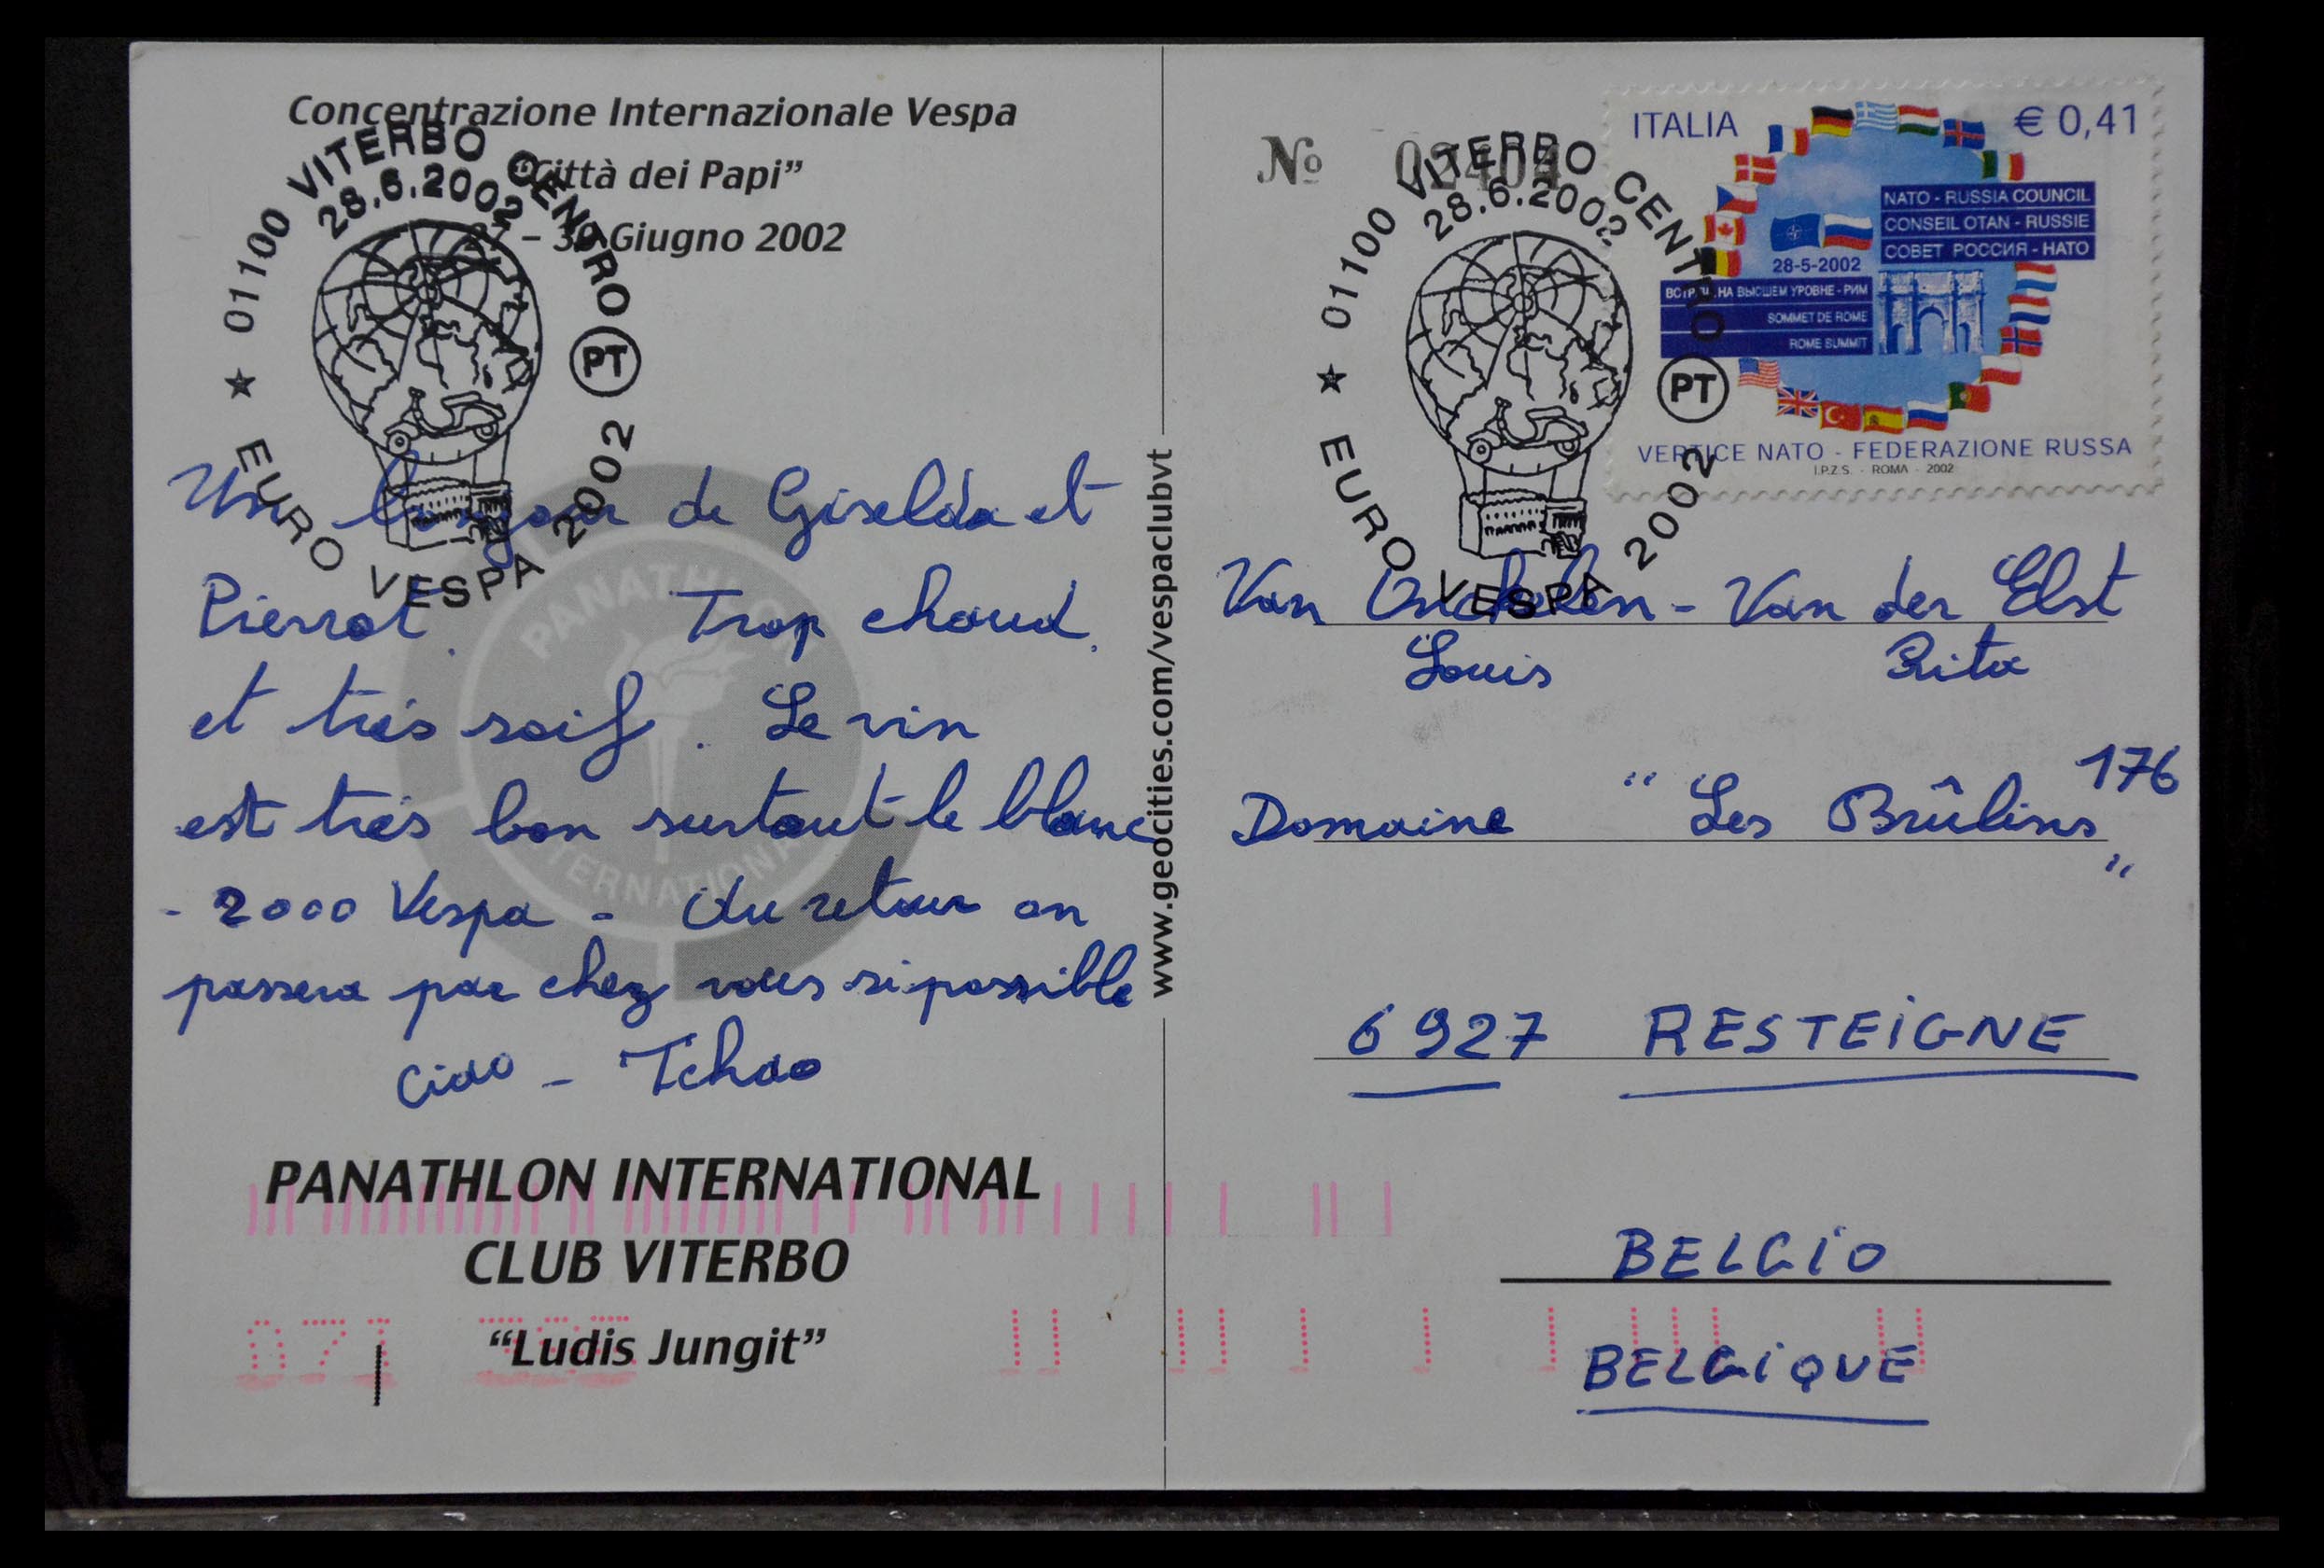 Concentrazione Internazionale Vespa
"Città dei Papi"
27 - 30 Giugno 2002
01100 VITERBO CENTRO PT
28.6.2002
★ EURO VESPA 2002
Un bonjour de Giselda et
Pierrot. Trop chaud,
et très soif. Le vin
est très bon surtout le blanc
- 2000 Vespa - Au retour on
passera par chez vous si possible
Ciao - Tchao
PANATHLON
INTERNATIONAL
PANATHLON INTERNATIONAL
CLUB VITERBO
"Ludis Jungit"
071
www.geocities.com/vespaclubvt
No 02404
01100 VITERBO CENTRO PT
28.6.2002
★ EURO VESPA 2002
ITALIA € 0,41
NATO - RUSSIA COUNCIL
CONSEIL OTAN - RUSSIE
СОВЕТ РОССИЯ - НАТО
28-5-2002
НА ВЫСШЕМ УРОВНЕ - РИМ
SOMMET DE ROME
ROME SUMMIT
VERTICE NATO - FEDERAZIONE RUSSA
I.P.Z.S. - ROMA - 2002
Van - Van der Elst
Louis Rita
Domaine "Les Brûlins" 176
6927 RESTEIGNE
BELGIO
BELGIQUE